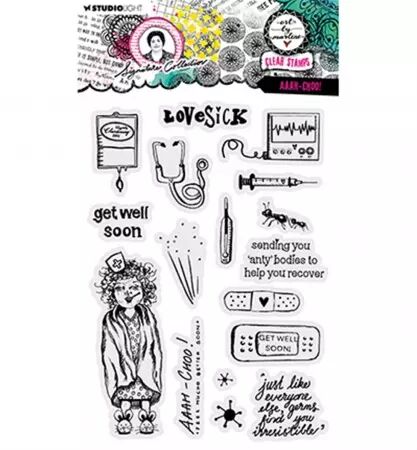 STUDIOLIGHT
Signature Collection
art
by
marlene
CLEAR STAMPS
AAAH-CHOO!
LOVESICK
get well
soon
sending you
'anty' bodies to
help you recover
GET WELL
SOON!
AAAH-CHOO!
FEEL MUCH BETTER SOON!
"just like
everyone
else, germs
find you
irresistible"